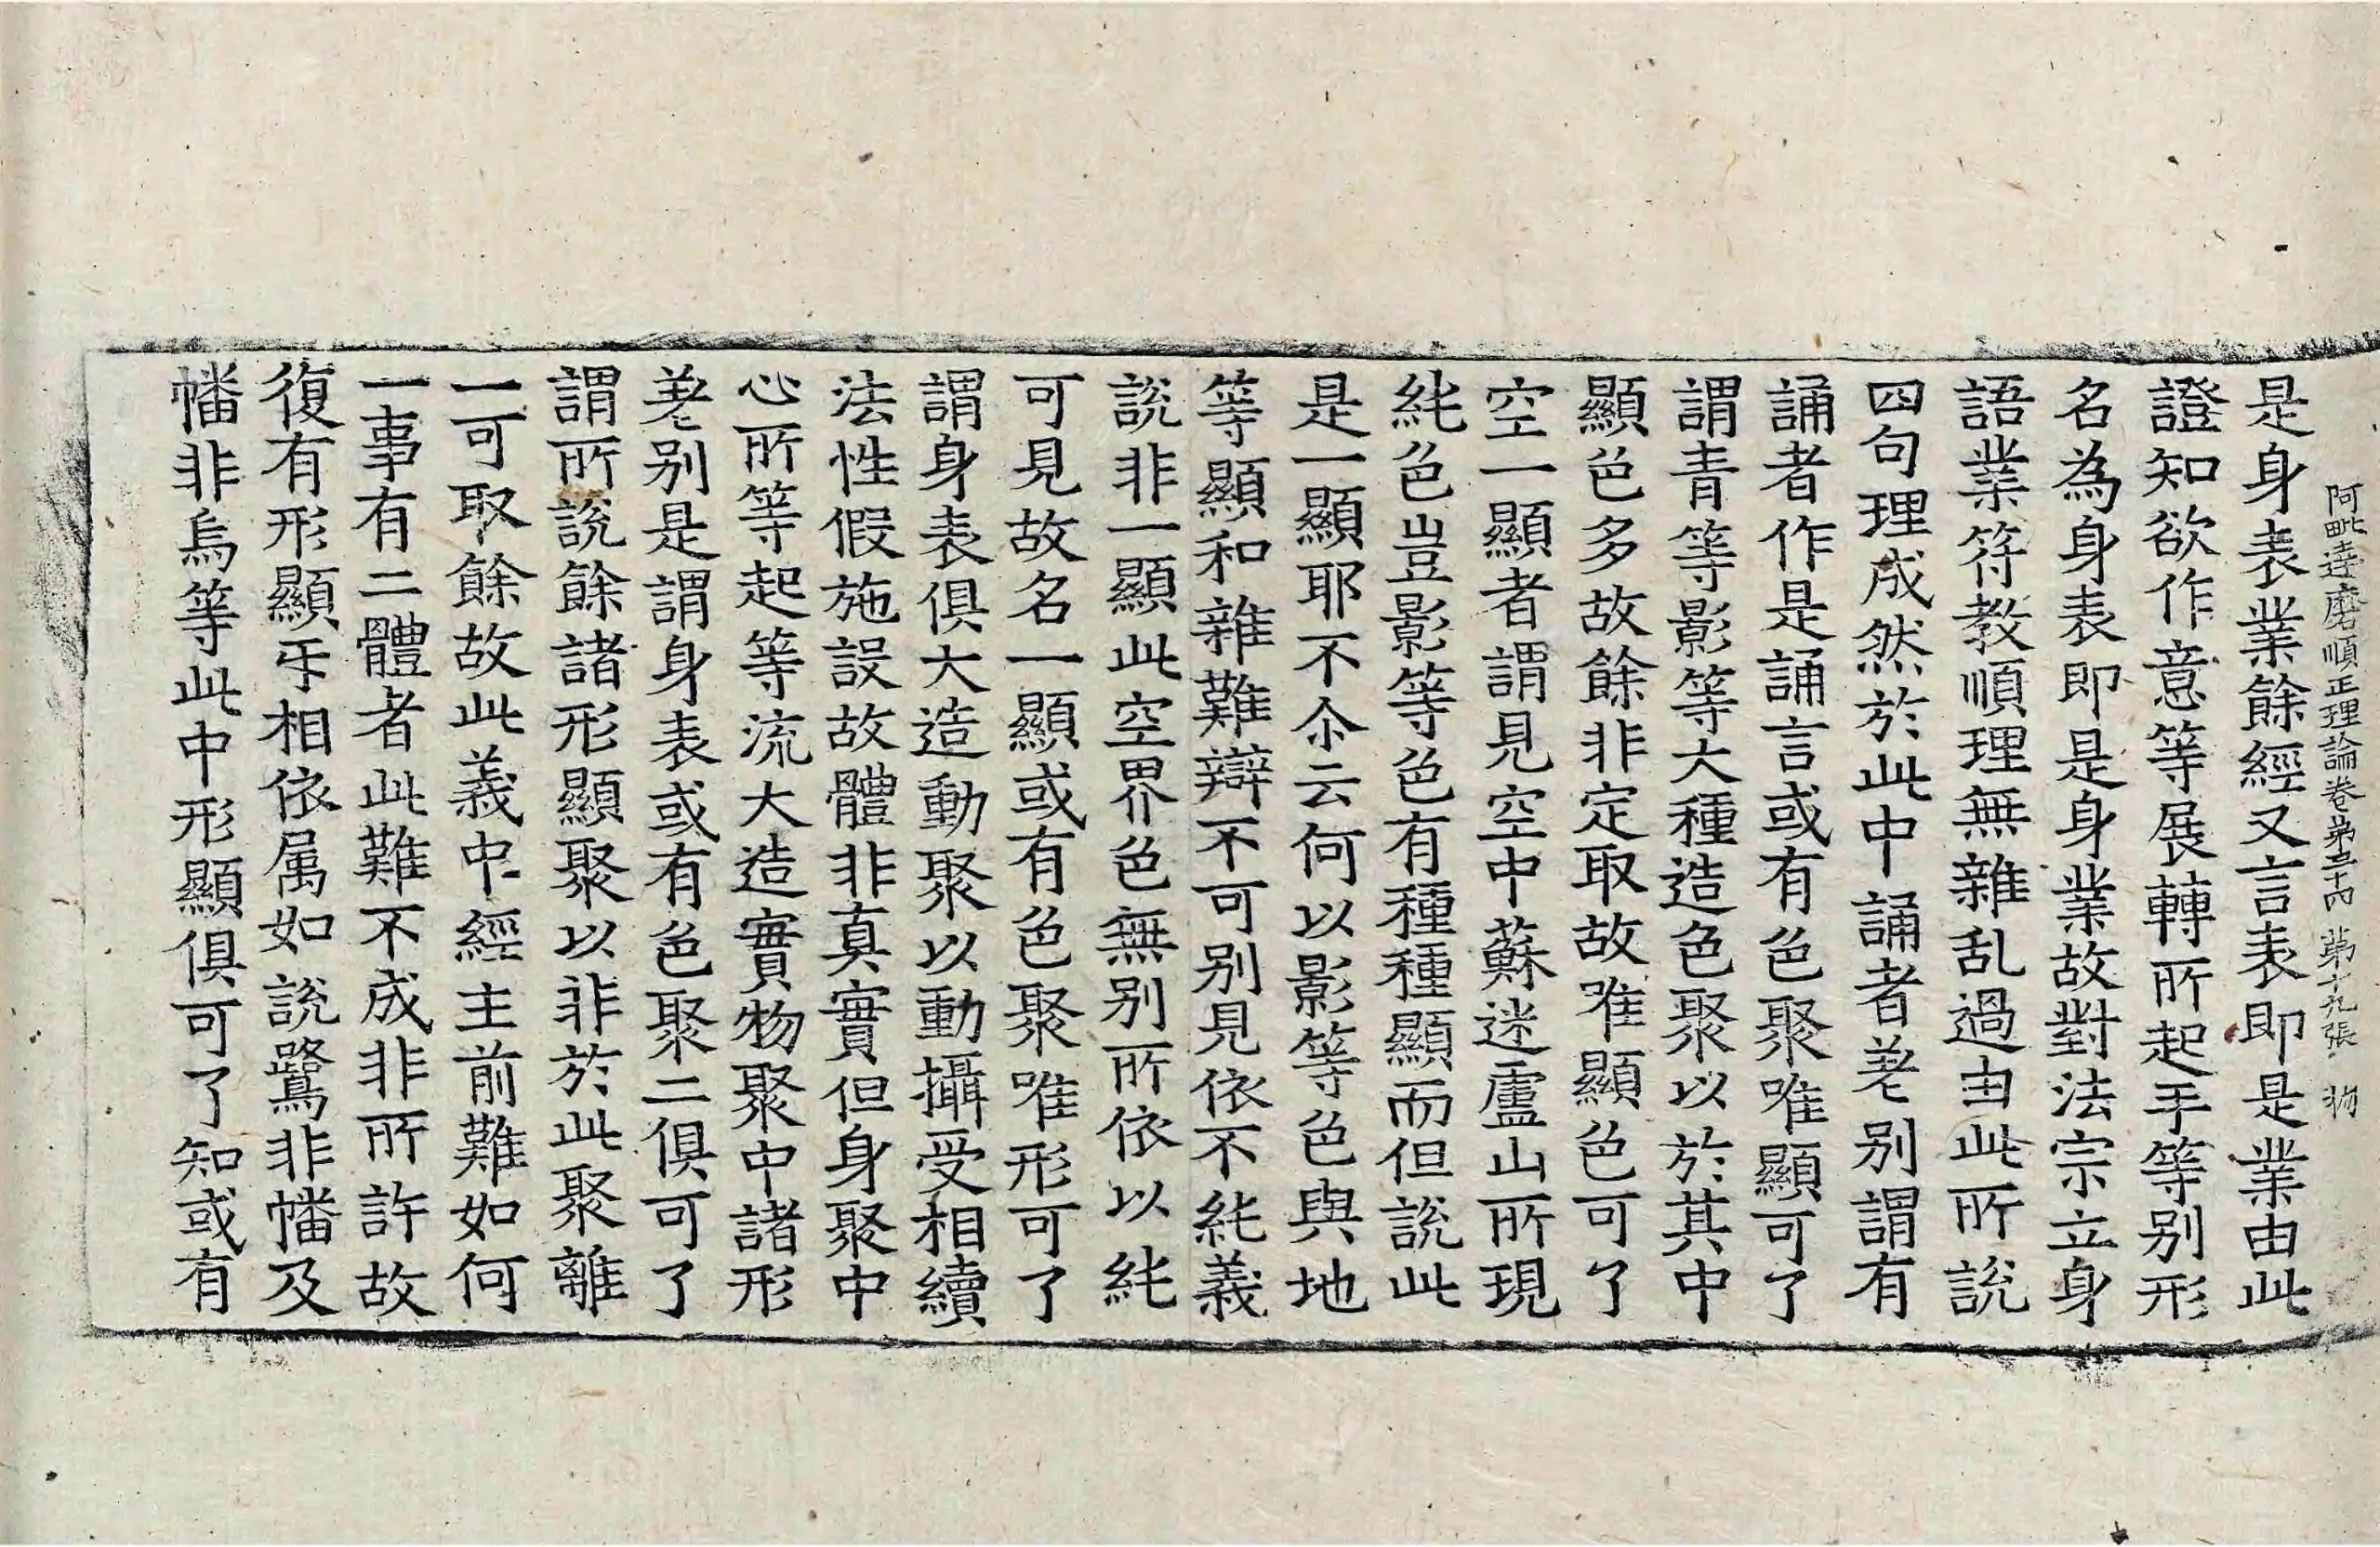 阿毗達磨順正理論卷第三十四 第十九張 物
是身表業餘經又言表即是業由此
證知欲作意等展轉所起手等別形
名為身表即是身業故對法宗立身
語業符教順理無雜乱過由此所說
四句理成然於此中誦者差別謂有
誦者作是誦言或有色聚唯顯可了
謂青等影等大種造色聚以於其中
顯色多故餘非定取故唯顯色可了
空一顯者謂見空中蘇迷盧山所現
純色豈影等色有種種顯而但說此
是一顯耶不尒云何以影等色與地
等顯和雜難辯不可別見依不純義
說非一顯此空界色無別所依以純
可見故名一顯或有色聚唯形可了
謂身表俱大造動聚以動攝受相續
法性假施設故體非真實但身聚中
心所等起等流大造實物聚中諸形
差別是謂身表或有色聚二俱可了
謂所說餘諸形顯聚以非於此聚離
一可取餘故此義中經主前難如何
一事有二體者此難不成非所許故
復有形顯㸦相依属如說鷺非幡及
幡非烏等此中形顯俱可了知或有